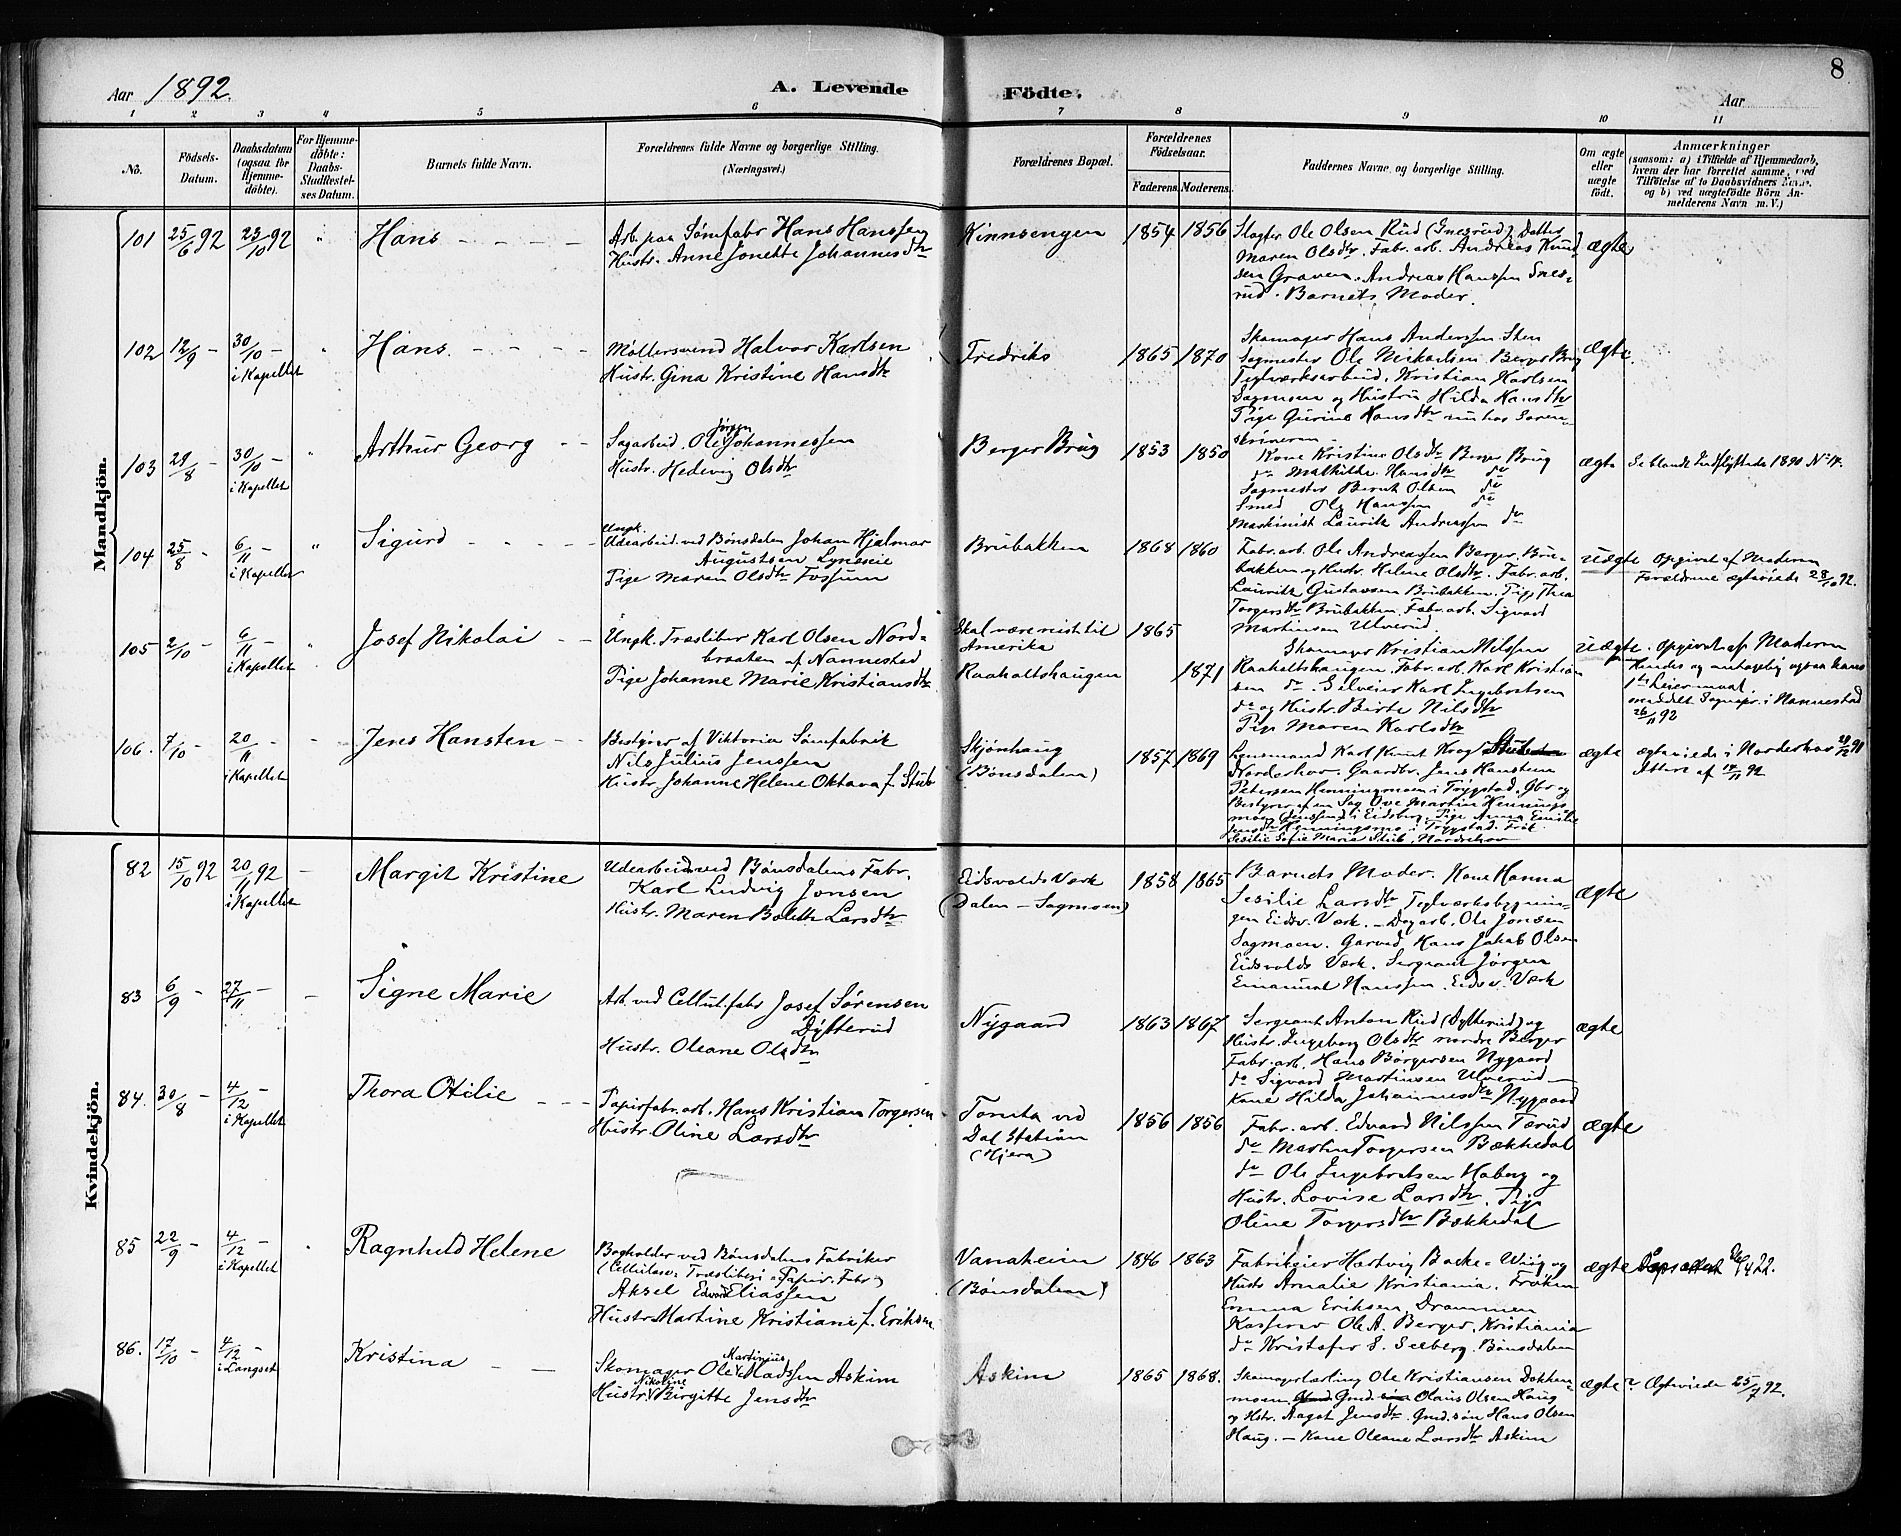 8
Aar 1892.
A. Levende Födte.
Aar
1 2 3 4 5 6 7 8 9 10 11
No.
Födsels-Datum.
Daabsdatum (ogsaa for Hjemme-döbte).
For Hjemme-döbte: Daabs-Stadfæstel-ses Datum.
Barnets fulde Navn.
Forældrenes fulde Navne og borgerlige Stilling.
(Næringsvei.)
Forældrenes Bopæl.
Forældrenes Födselsaar.
Faderens. Moderens.
Faddernes Navne og borgerlige Stilling.
Om ægte eller uægte födt.
Anmærkninger
(saasom: a) i Tilfælde af Hjemmedaab, hvem der har forrettet samme, med Tilföielse af to Daabsvidners Navne, og b) ved uægtefödte Börn An-melderens Navn m. V.)
Mandkjön.
101 25/6 92 23/10 92 " Hans
Arb. paa Sømfabr Hans Hanssen
Hustr. Anne Jonette Johannesdtr
Kinnsengen 1854 1856
Slagter Ole Olsen Rud (Snesrud) Datter
Maren Olsdtr. Fabr. arb. Andreas Knud
sen Graven. Andreas Hanssen Snes-
rud. Barnets Moder.
ægte
102 12/9 - 30/10 - i Kapellet " Hans.
Møllersvend Halvor Karlsen
Hustr. Gina Kristine Hansdtr
Fredriks 1865 1870
Skomager Hans Anderssen Sten
Sagmester Ole Mikaelsen Berger Brug
Teglværksarbeid. Kristian Karlsen
Sagmoen og Hustru Hilda Hansdtr
Pige Gurine Hansdtr nu hos Soren-
skriveren
ægte.
103 29/8 - 30/10 - i Kapellet " Arthur Georg
Sagarbeid. Ole Jørgen Johannessen
Hustr. Hedevig Olsdtr
Berger Brug 1853 1850
Kone Kristine Olsdtr Berger Brug
do Mathilde Hansdtr do
Sagmester Bernt Olsen do
Smed Ole Hanssen do
Maskinist Lauritz Andreassen do
ægte Se blandt Indflyttede 1890 No 14.
104 25/8 - 6/11 - i Kapellet " Sigurd
Ungk.
Udearbeid. ved Bønsdalen Johan Hjalmar
Augustsen Lyneseie
Pige Maren Olsdtr Fossum
Brubakken 1868 1860
Fabr. arb. Ole Andreassen Berger, Bru-
bakken og Hustr. Helene Olsdtr. Fabr. arb.
Lauritz Gustavsen Brubakken. Pige Thea
Torgersdtr Brubakken. Fabr. arb. Sigvard
Martinsen Ulverud
uægte Opgivet af Moderen
Forældrene ægteviede 28/10 92.
105 2/10 - 6/11 - i Kapellet " Josef Nikolai
Ungk. Træsliber Karl Olsen Nord-
braaten af Nannestad
Pige Johanne Marie Kristiansdtr
Skal være reist til Amerika 1865
Raaholtshaugen 1871
Skomager Kristian Nilssen
Raaholtshaugen. Fabr. arb. Karl Kristian
sen do. Selveier Karl Ingebretsen
do og Hustr. Birte Nilsdtr
Pige Maren Karlsdtr
uægte. Opgivet af Moderen
Hendes og antagelig ogsaa hans
1ste Leiermaal.
meddelt Sognepr. i Nannestad
26/11 92
106. 7/10 - 20/11 - i Kapellet Jens Hansten
Bestyrer af Viktoria Sømfabrik
Nils Julius Jenssen
Hustr. Johanne Helene Oktava f. Stub
Skjønhaug
(Bønsdalen) 1857 1869
Lensmand Karl Knut Krag
Norderhov. Gaardbr. Jens Hansteen
Petersen Henningmoen i Trygstad. Gbr og
Bestyrer af en Sag Ove Martin Hennings-
moen (Jenssen) i Eidsberg. Pige Anna Emilie
Jensdtr Henningsmo i Trygstad. Frøk.
Sesilie Sofie Marie Stub, Norderhov
ægte ægteviede i Norderhov 29/12 91
Attest af 14/11 92
Kvindekjön.
82 15/10 92 20/11 92 i Kapellet - Margit Kristine
Udearbeider ved Bønsdalens Fabr.
Karl Ludvig Jonsen
Hustr. Maren Bolette Larsdtr
Eidsvolds Værk
(Dalen - Sagmoen) 1858 1865
Barnets Moder. Kone Hanna
Sesilie Larsdtr Teglværksbygnin-
gen Eidsv. Værk. - Dagarb. Ole Jonsen
Sagmoen. Garved. Hans Jakob Olsen
Eidsvolds Værk. Sergeant Jørgen
Emanuel Hanssen. Eidsv. Værk
ægte
83 6/9 - 27/11 - - Signe Marie
Arb. ved Cellul. fabr Josef Sørensen
Dytterud
Hustr. Oleane Olsdtr
Nygaard 1863 1867
Sergeant Anton Rud (Dytterud) og
Hustr. Ingeborg Olsdtr nordre Berger
Fabr. arb. Hans Børgersen Nygaard
do Sigvard Martinsen Ulverud
Kone Hilda Johannesdtr Nygaard
ægte
84. 30/8 - 4/12 - i Kapellet Thora Otilie
Papirfabr. arb. Hans Kristian Torgersen
Hustr. Oline Larsdtr
Tomta ved
Dal Station
(Hjera) 1856 1856
Fabr. arb. Edvard Nilssen Tærud
do Martin Torgersen Bækkedal
do Ole Ingebretsen Haberg og
Hustr. Lovise Larsdtr. Pige
Oline Torgersdtr Bækkedal
ægte
85 22/9 - 4/12 - i Kapellet Ragnhild Helene
Bogholder ved Bønsdalens Fabriker
(Cellulose, Træsliberi, Papir-Fabr)
Aksel Edvard Eliassen
Hustr. Martine Kristiane f. Eriksen
Vanaheim
(Bønsdalen) 1846 1863
Fabrikeier Hartvig Backe-Wiig og
Hustr Amalie Kristiania. Frøken
Emma Eriksen, Drammen
Kasserer Ole A. Berger, Kristiania
do Kristofer S. Seeberg. Bønsdalen
ægte Dåpsattest 22.
86. 17/10 - 4/12 - i Langset Kristina
Skomager Ole Martinius Madssen Askim
Hustr. Nikoline Birgitte Jensdtr
Askim 1865 1868.
Skomagerlærling Ole Kristiansen Dokken-
moen Gmd. Olaus Olsen Haug
og Hstr. Aagot Jensdtr. Gmd. søn Hans Olsen
Haug. - Kone Oleane Larsdtr Askim
ægte ? Ægteviede 25/7 92.